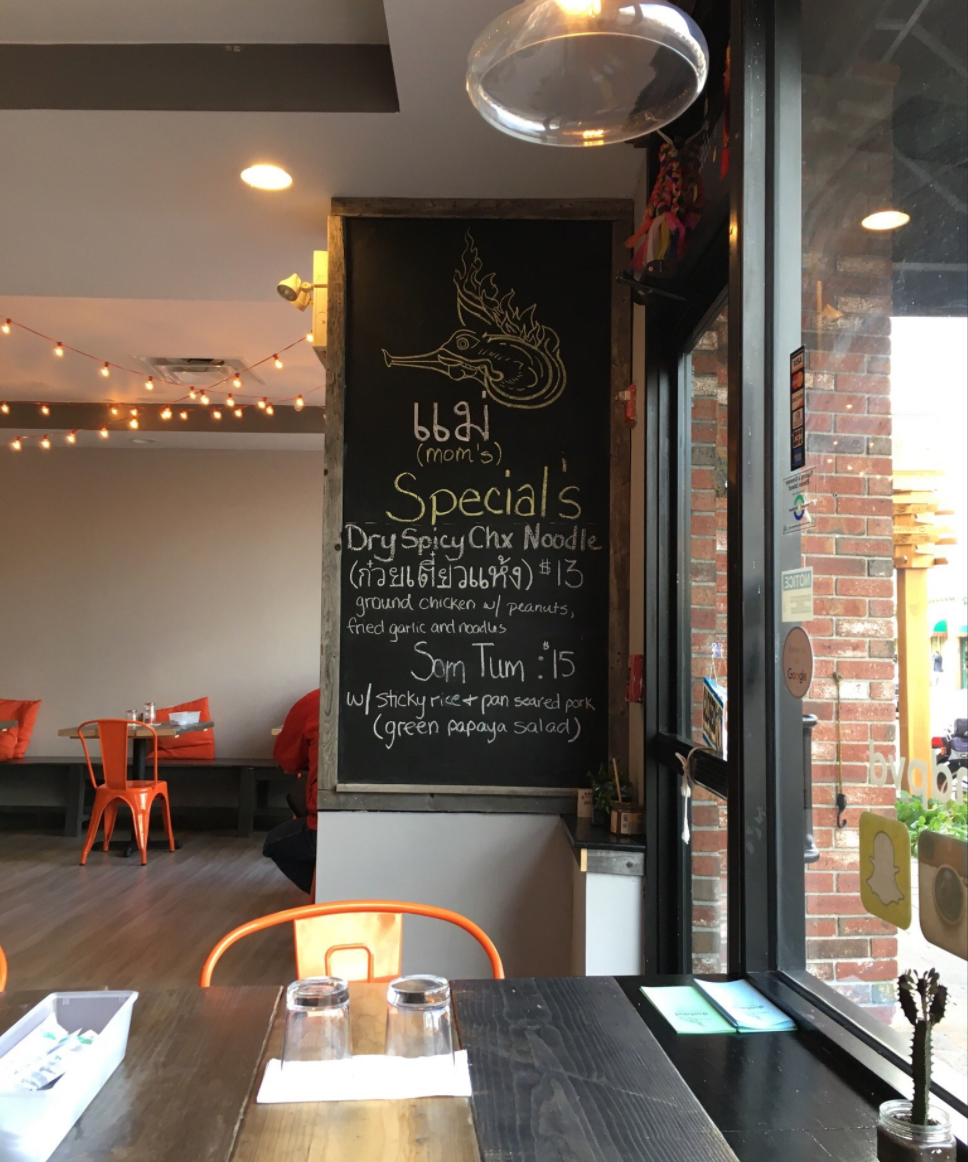 แม่
(mom's)
Special's
Dry Spicy Chx Noodle
(ก๋วยเตี๋ยวแห้ง) $13
ground chicken w/ peanuts,
fried garlic and noodles
Som Tum : $15
w/ sticky rice + pan seared pork
(green papaya salad)
NOTICE
Google